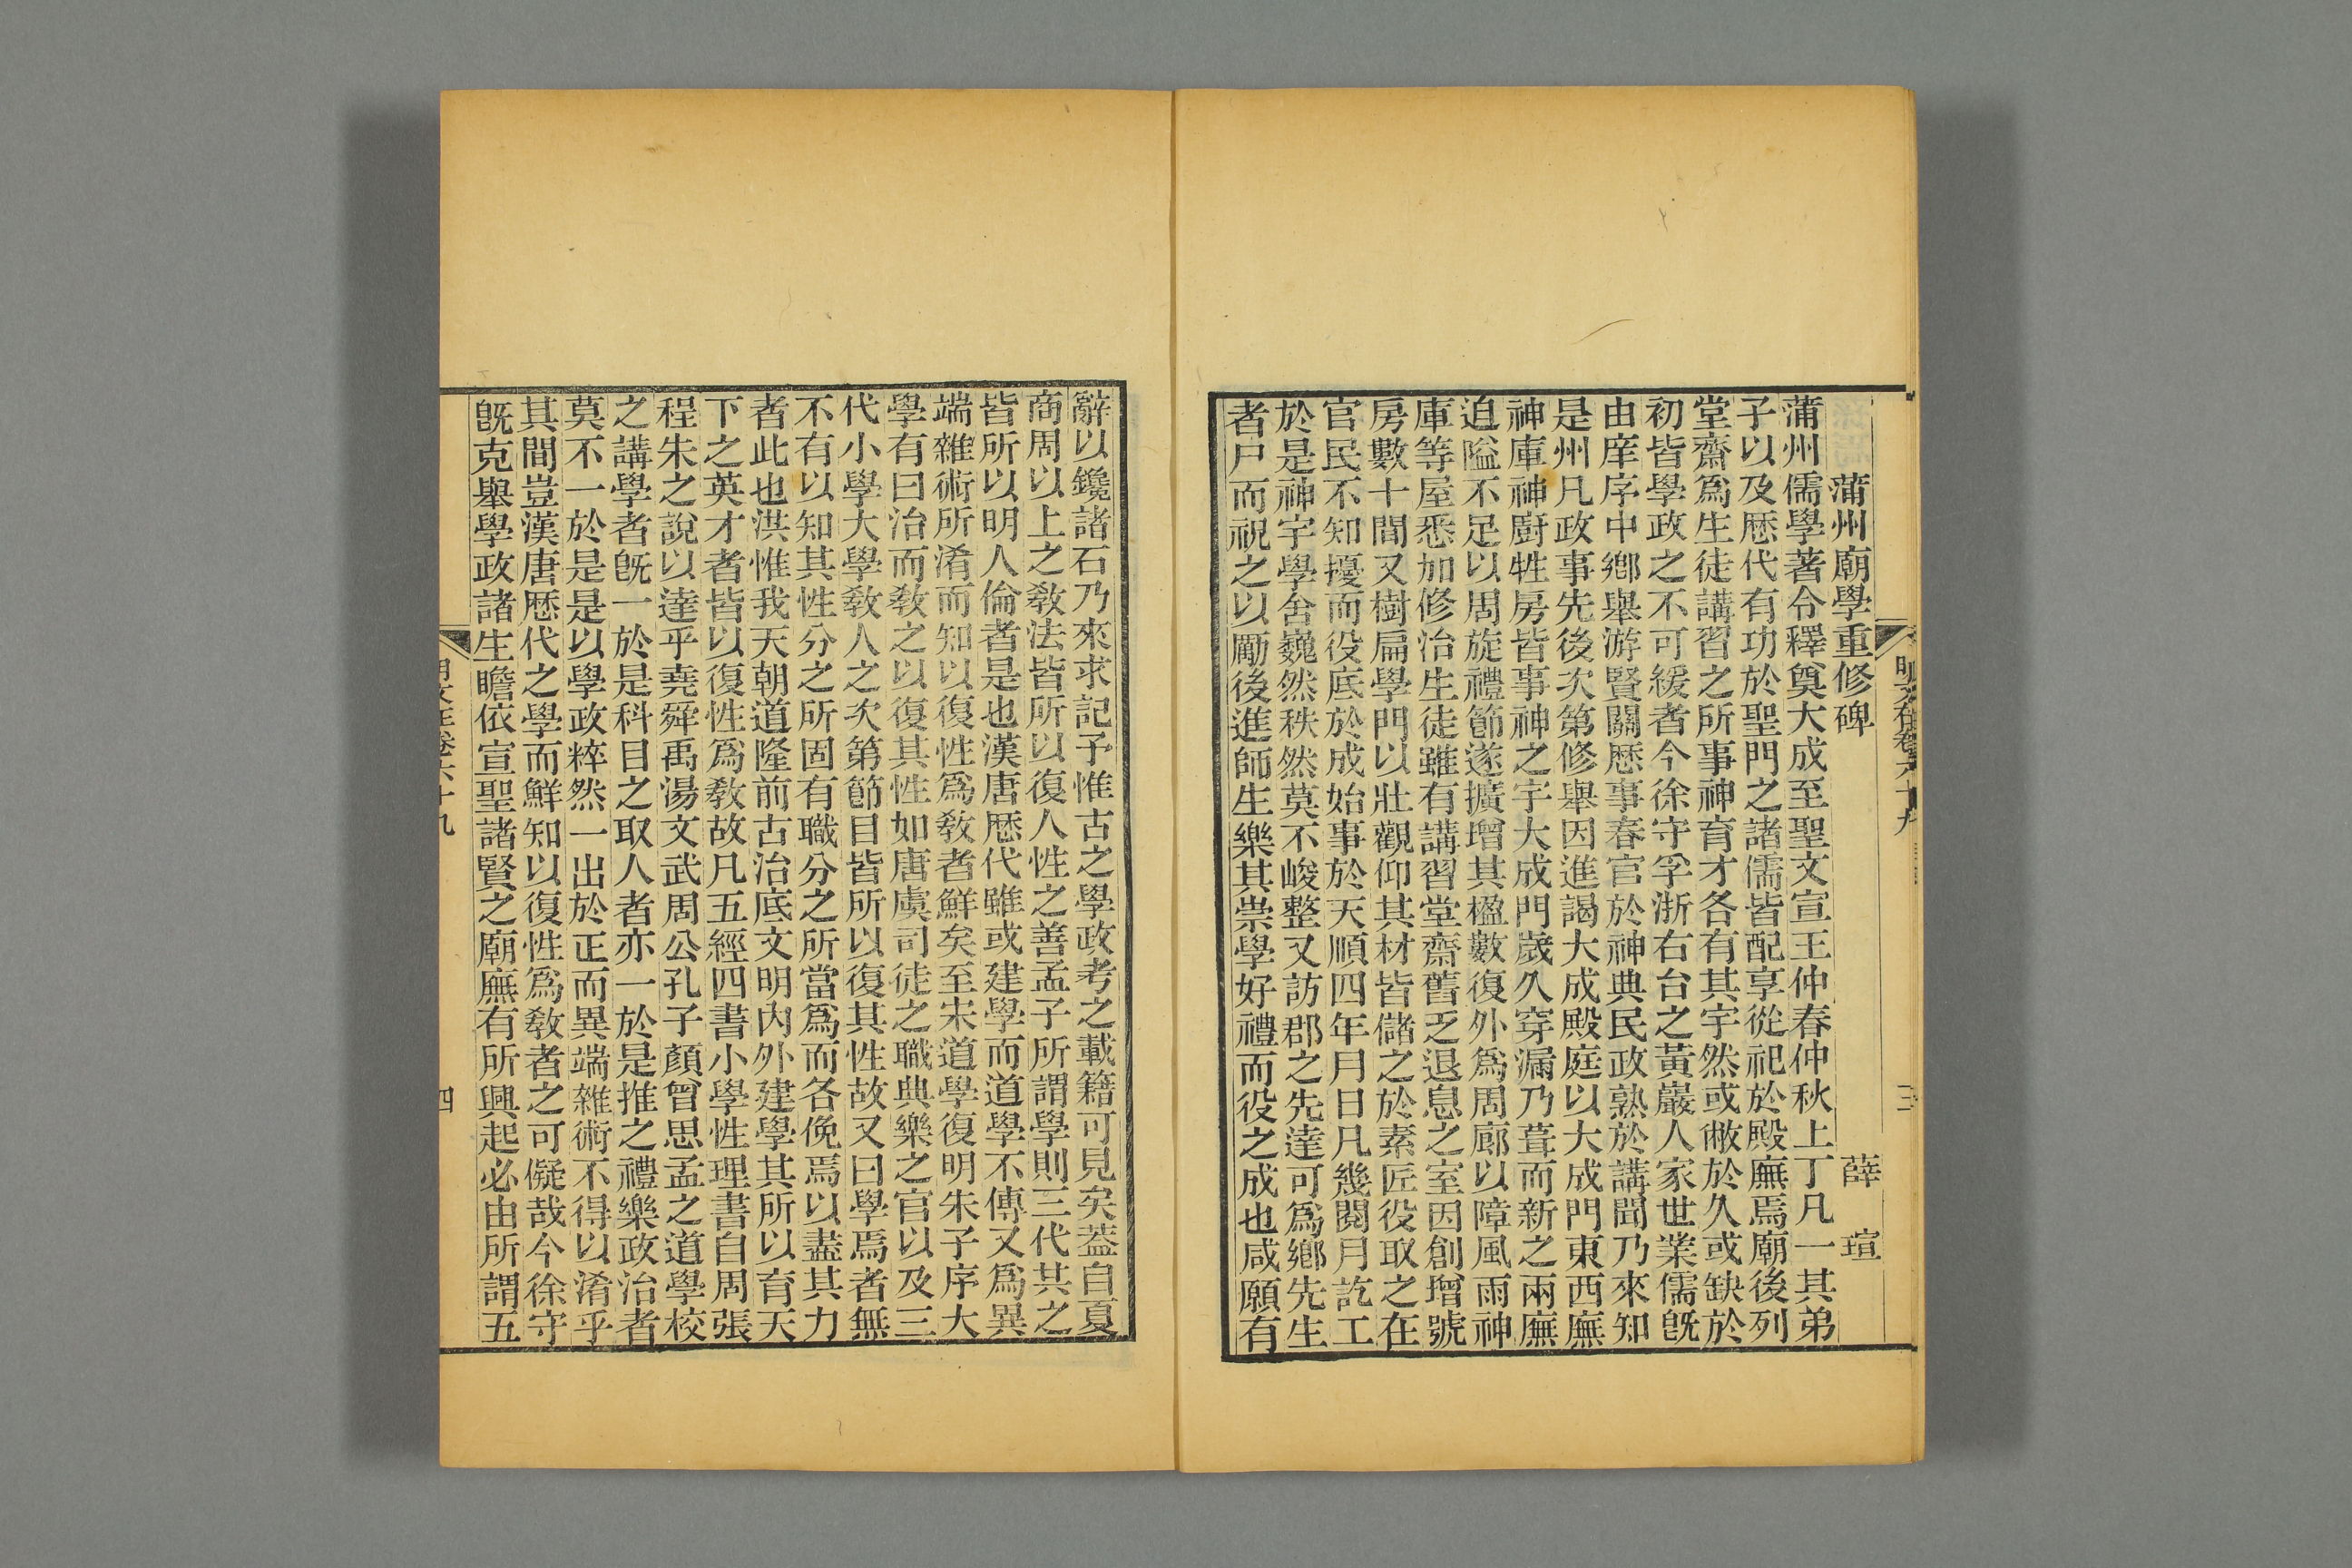 蒲州廟學重修碑　薛瑄
蒲州儒學著令釋奠大成至聖文宣王仲春仲秋上丁凡一其弟
子以及歷代有功於聖門之諸儒皆配享從祀於殿廡焉廟後列
堂齋爲生徒講習之所事神育才各有其宇然或敝於久或缺於
初皆學政之不可緩者今徐守孚浙右台之黃巖人家世業儒既
由庠序中鄉舉游賢關歷事春官於神典民政熟於講聞乃來知
是州凡政事先後次第修舉因進謁大成殿庭以大成門東西廡
神庫神廚牲房皆事神之宇大成門歲久穿漏乃葺而新之兩廡
迫隘不足以周旋禮節遂擴增其楹數復外爲周廊以障風雨神
庫等屋悉加修治生徒雖有講習堂齋舊乏退息之室因創增號
房數十間又樹扁學門以壯觀仰其材皆儲之於素匠役取之在
官民不知擾而役底於成始事於天順四年月日凡幾閱月訖工
於是神宇學舍巍然秩然莫不峻整又訪郡之先達可爲鄉先生
者尸而祝之以勵後進師生樂其崇學好禮而役之成也咸願有
明文在卷六十九
三
辭以鑱諸石乃來求記予惟古之學政考之載籍可見矣蓋自夏
商周以上之敎法皆所以復人性之善孟子所謂學則三代共之
皆所以明人倫者是也漢唐歷代雖或建學而道學不傳又爲異
端雜術所淆而知以復性爲敎者鮮矣至宋道學復明朱子序大
學有曰治而敎之以復其性如唐虞司徒之職典樂之官以及三
代小學大學敎人之次第節目皆所以復其性故又曰學焉者無
不有以知其性分之所固有職分之所當爲而各俛焉以盡其力
者此也洪惟我天朝道隆前古治底文明內外建學其所以育天
下之英才者皆以復性爲敎故凡五經四書小學性理書自周張
程朱之說以達乎堯舜禹湯文武周公孔子顏曾思孟之道學校
之講學者旣一於是科目之取人者亦一於是推之禮樂政治者
莫不一於是是以學政粹然一出於正而異端雜術不得以淆乎
其間豈漢唐歷代之學而鮮知以復性爲敎者之可儗哉今徐守
旣克舉學政諸生瞻依宣聖諸賢之廟廡有所興起必由所謂五
明文在卷六十九
四